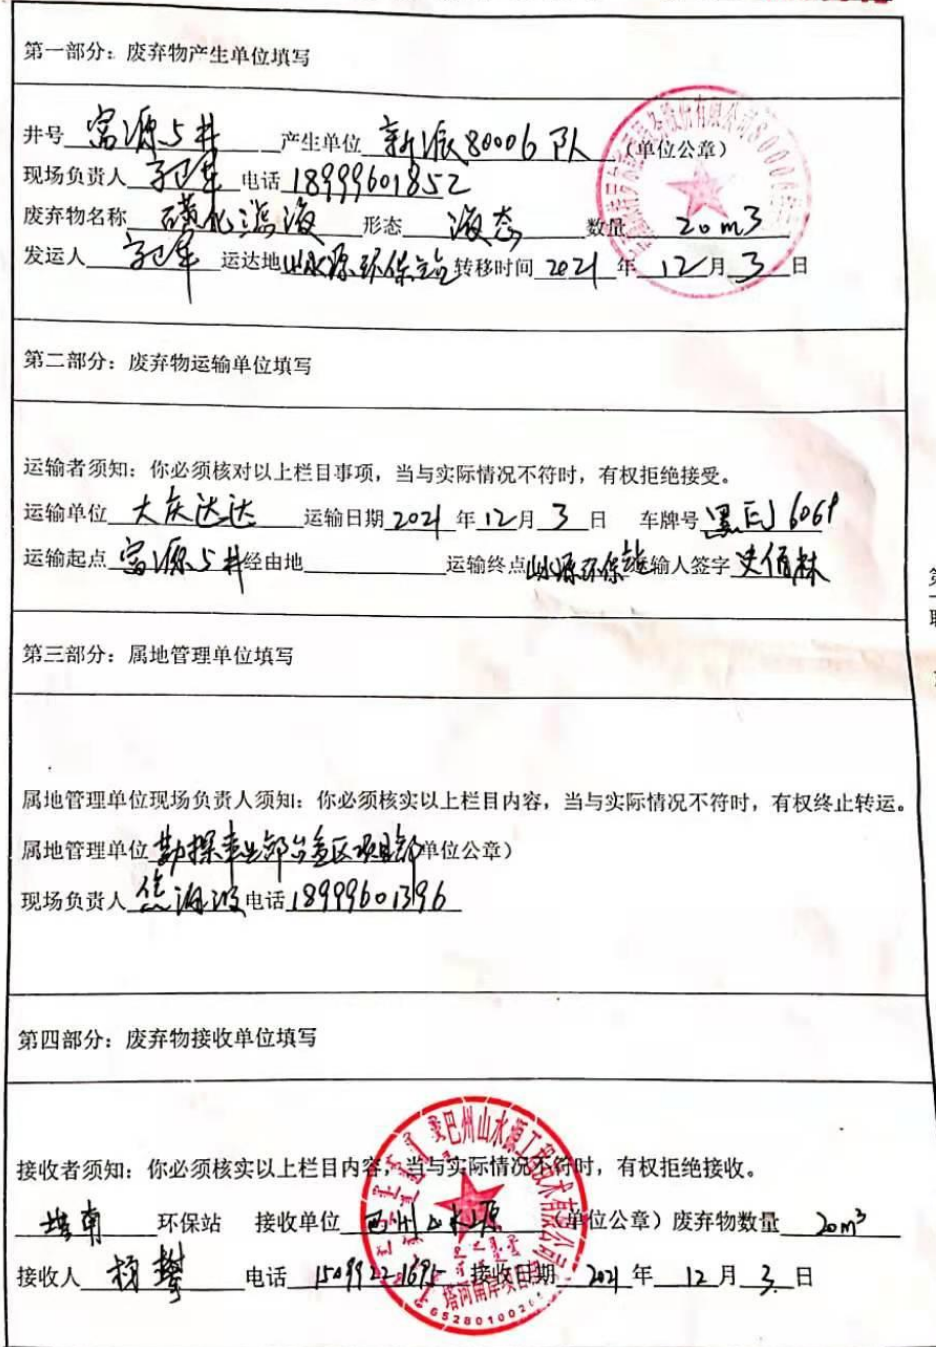 第一部分：废弃物产生单位填写
井号 富源5井 产生单位 新派80006队 （单位公章）
现场负责人 电话 18999601852
废弃物名称 磺化泥浆 形态 液态 数量 20m3
发运人 运达地 山水源环保站 转移时间 2021 年 12 月 3 日
第二部分：废弃物运输单位填写
运输者须知：你必须核对以上栏目事项，当与实际情况不符时，有权拒绝接受。
运输单位 大庆达达 运输日期 2021 年 12 月 3 日 车牌号
运输起点 富源5井 经由地 运输终点 山水源环保站 运输人签字 史佰林
第三部分：属地管理单位填写
属地管理单位现场负责人须知：你必须核实以上栏目内容，当与实际情况不符时，有权终止转运。
属地管理单位 勘探事业部台盆区项目部 单位公章）
现场负责人 焦海波 电话 18999601396
第四部分：废弃物接收单位填写
接收者须知：你必须核实以上栏目内容，当与实际情况不符时，有权拒绝接收。
塔南 环保站 接收单位 巴州山水源 （单位公章）废弃物数量 20m³
接收人 杨攀 电话 接收日期 2021 年 12 月 3 日
巴州山水源工程技术有限公司
塔河南岸项目部